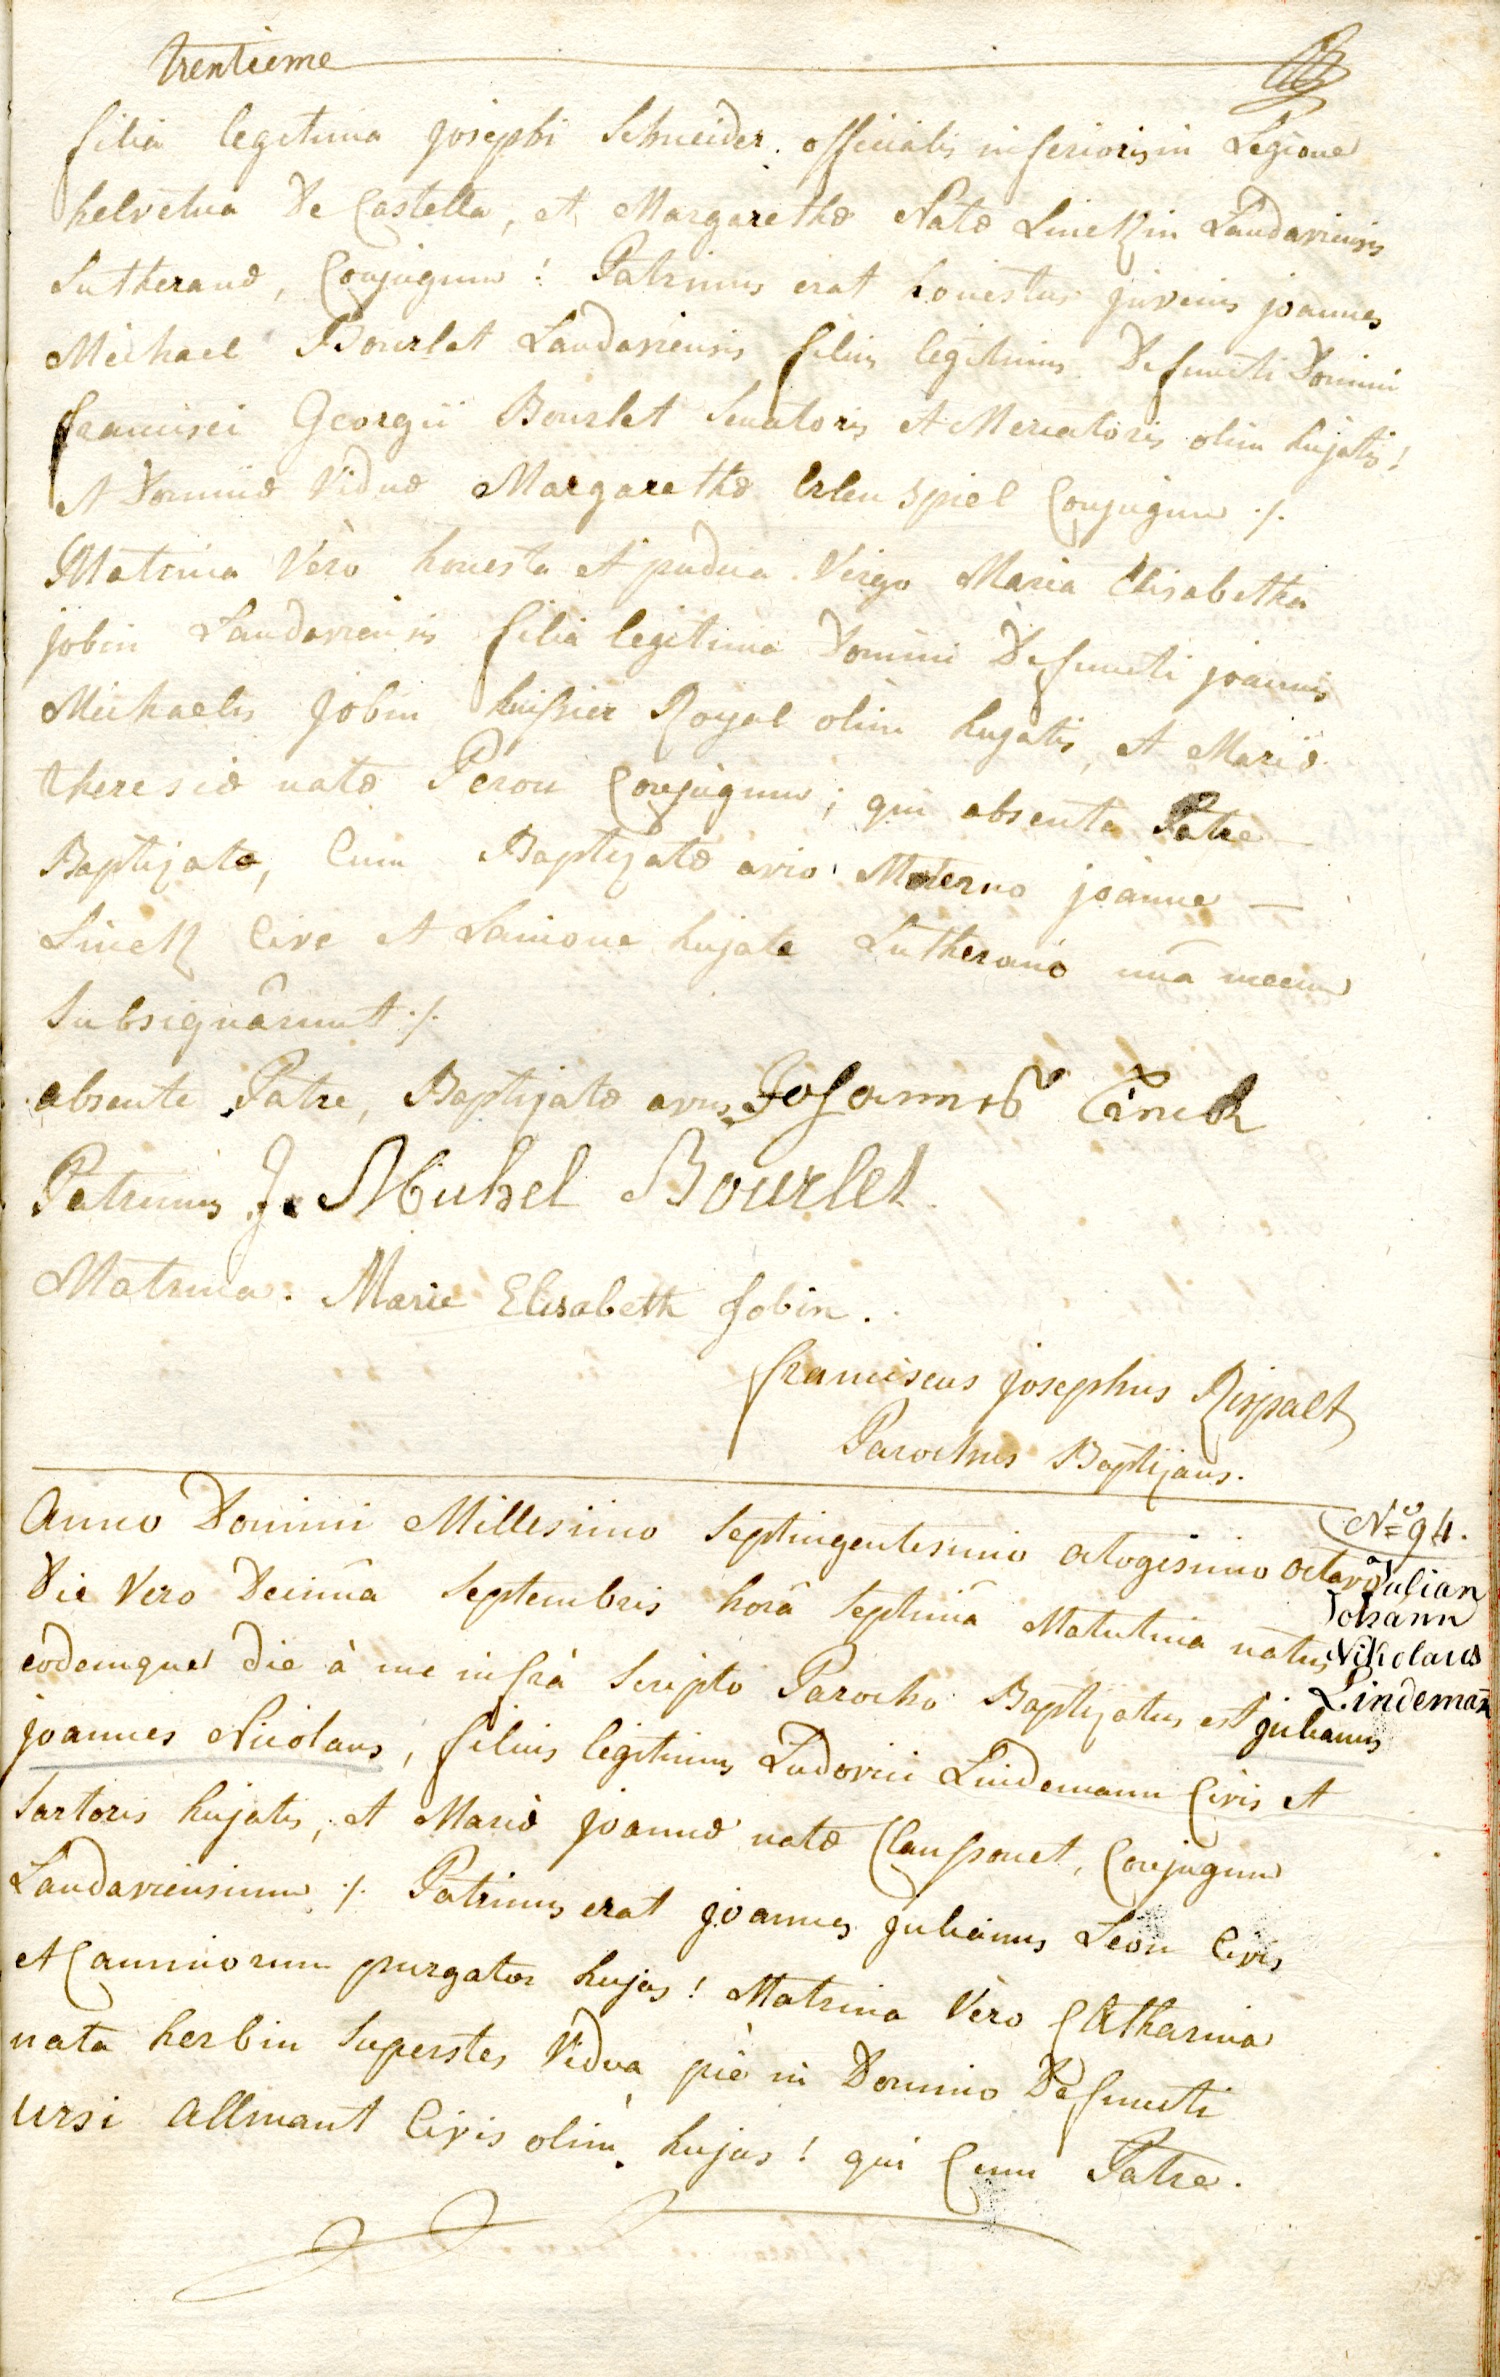 trentieme
filia legitima josephi Schneider officialis inferioris in Legione
helvetica De Castella, et Margarethæ Natæ Linckin Landaviensis
Lutheranæ, Conjugum! Patrinus erat honestus juvenis joannes
Michael Bourlet Landaviensis filius legitimus Defuncti Domini
francisci Georgii Bourlet Senatoris et Mercatoris olim hujatis!
et Dominæ Viduæ Margarethæ Erlenspiel Conjugum ./.
Matrina Vèro honesta et pudica Virgo Maria Elisabetha
jobin Landaviensis filia legitima Domini Defuncti joannis
Michaelis jobin huissier Royal olim hujatis, et Mariæ
theresiæ natæ Péron Conjugum; qui absente Patre
Baptizatæ, Cum Baptizatæ avio Materno joanne —
Linck Cive et Lanione hujate Lutherano unà mecum
Subsignârunt ./.
absente Patre, Baptizatæ avus Johannes Linck
Patrinus J. Michel Bourlet
Matrina: Marie Elisabeth Jobin.
franciscus josephus Rispalt
Parochus Baptizans.
Nº 94.
Anno Domini Millesimo Septingentesimo octogesimo octavo
Julian
Johann
Nikolaus
Lindemañ
Die Vero Decimâ Septembris horâ Septimâ Matutina natus
eodemque die à me infrà Scripto Parocho Baptizatus est julianus
joannes Nicolaus, filius legitimus Ludovici Lindemann Civis et
Sartoris hujatis, et Mariæ joannæ natæ Claussonet, Conjugum
Landaviensium ./. Patrinus erat joannes julianus Leon Civis
et Caminorum purgator hujas! Matrina Vèro Catharina
nata herbin Superstes Vidua piè in Domino Defuncti
Ursi Allmant Civis olim hujas! qui Cum Patre.